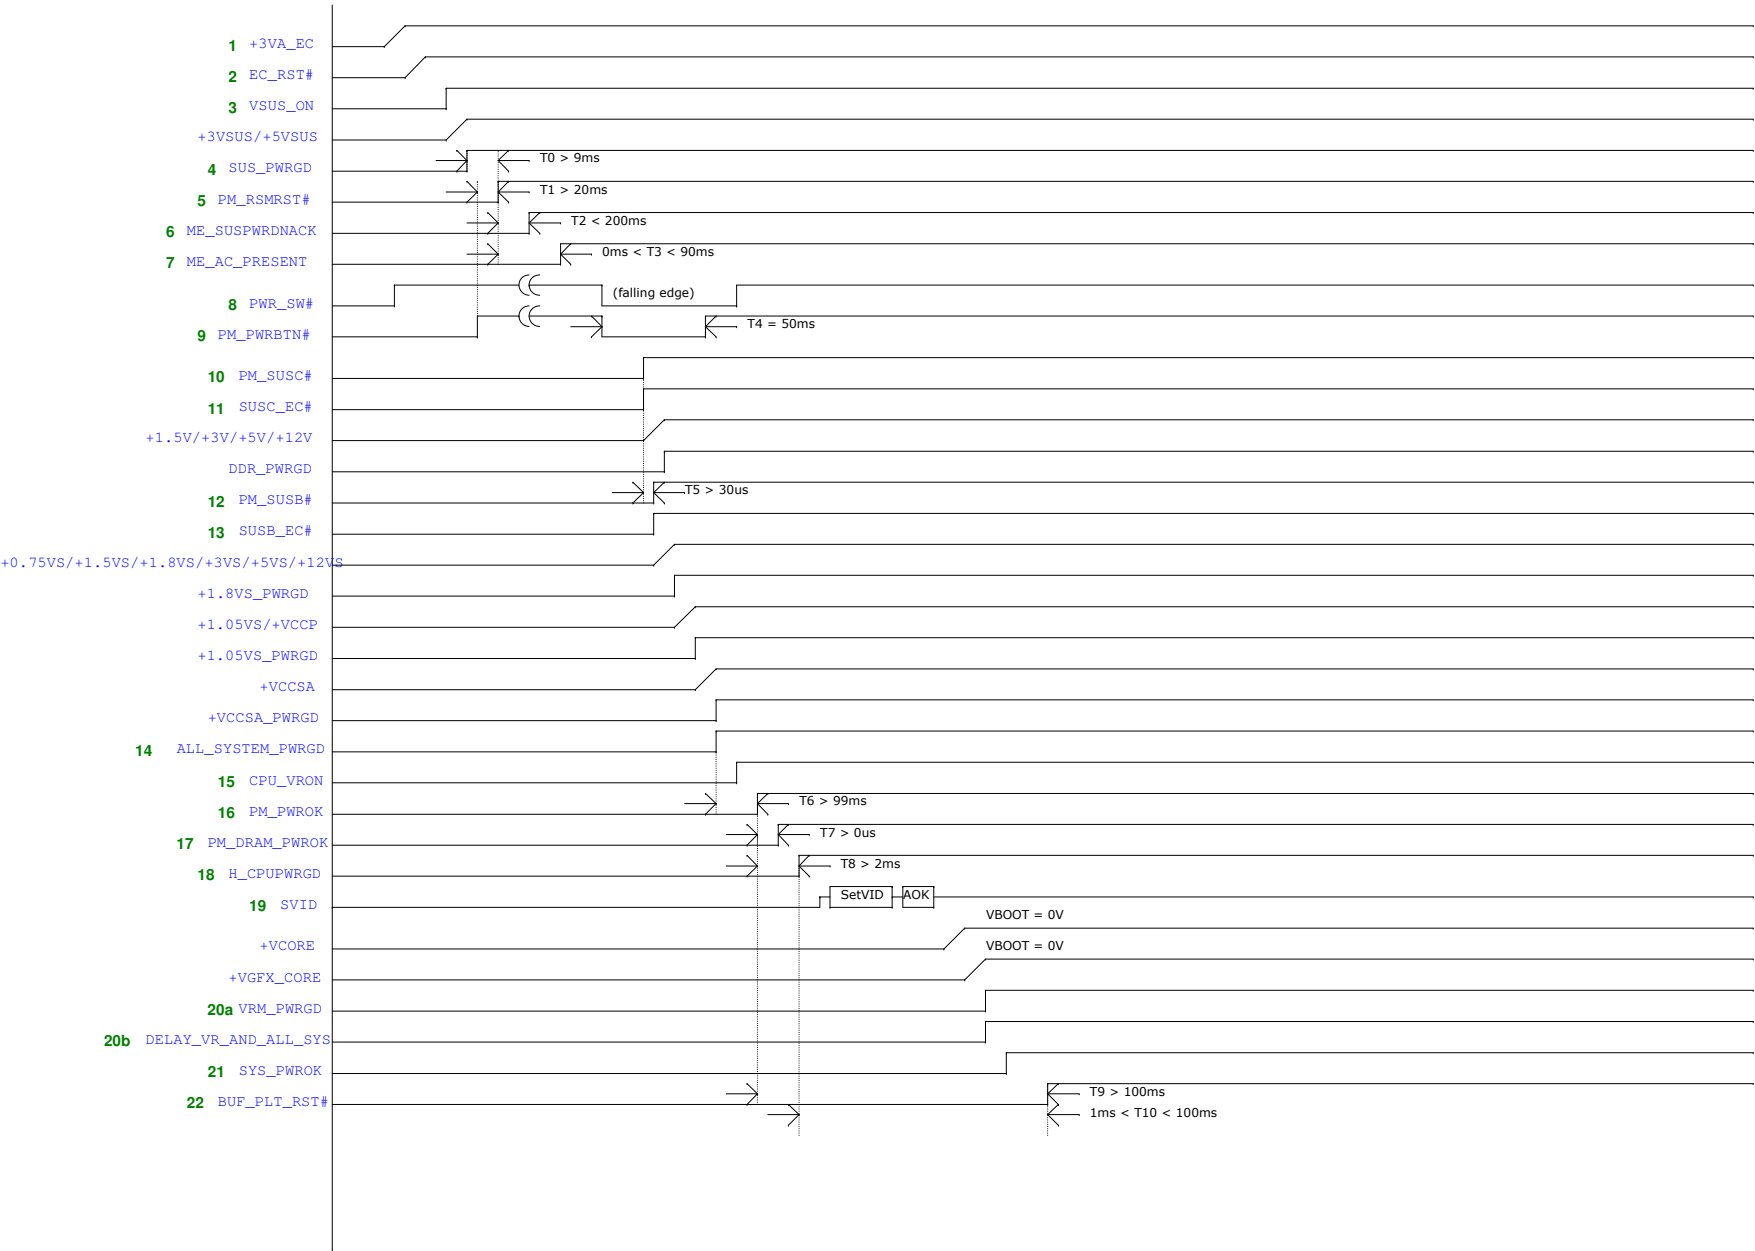 1 +3VA_EC
2 EC_RST#
3 VSUS_ON
+3VSUS/+5VSUS
4 SUS_PWRGD T0 > 9ms
5 PM_RSMRST# T1 > 20ms
6 ME_SUSPWRDNACK T2 < 200ms
7 ME_AC_PRESENT 0ms < T3 < 90ms
8 PWR_SW# (falling edge)
9 PM_PWRBTN# T4 = 50ms
10 PM_SUSC#
11 SUSC_EC#
+1.5V/+3V/+5V/+12V
DDR_PWRGD
12 PM_SUSB# T5 > 30us
13 SUSB_EC#
+0.75VS/+1.5VS/+1.8VS/+3VS/+5VS/+12VS
+1.8VS_PWRGD
+1.05VS/+VCCP
+1.05VS_PWRGD
+VCCSA
+VCCSA_PWRGD
14 ALL_SYSTEM_PWRGD
15 CPU_VRON
16 PM_PWROK T6 > 99ms
17 PM_DRAM_PWROK T7 > 0us
18 H_CPUPWRGD T8 > 2ms
19 SVID SetVID AOK
VBOOT = 0V
+VCORE VBOOT = 0V
+VGFX_CORE
20a VRM_PWRGD
20b DELAY_VR_AND_ALL_SYS
21 SYS_PWROK
22 BUF_PLT_RST# T9 > 100ms
1ms < T10 < 100ms